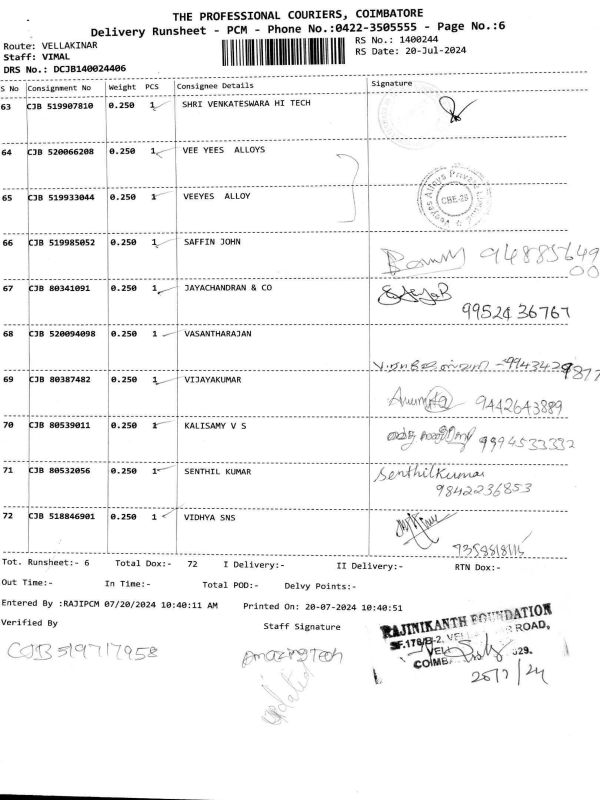 THE PROFESSIONAL COURIERS, COIMBATORE
Delivery Runsheet - PCM - Phone No.:0422-3505555 - Page No.:6
Route: VELLAKINAR
RS No.: 1400244
Staff: VIMAL
RS Date: 20-Jul-2024
DRS No.: DCJB140024406
S No Consignment No Weight PCS Consignee Details Signature
63 CJB 519907810 0.250 1 SHRI VENKATESWARA HI TECH
64 CJB 520066208 0.250 1 VEE YEES ALLOYS
Veeyes Alloys Private Limited
CBE-29
65 CJB 519933044 0.250 1 VEEYES ALLOY
66 CJB 519985052 0.250 1 SAFFIN JOHN
9488564900
67 CJB 80341091 0.250 1 JAYACHANDRAN & CO
9952436767
68 CJB 520094098 0.250 1 VASANTHARAJAN
69 CJB 80387482 0.250 1 VIJAYAKUMAR
9442643889
70 CJB 80539011 0.250 1 KALISAMY V S
9994533332
71 CJB 80532056 0.250 1 SENTHIL KUMAR
Senthilkumar
9842236853
72 CJB 518846901 0.250 1 VIDHYA SNS
Tot. Runsheet:- 6 Total Dox:- 72 I Delivery:- II Delivery:- RTN Dox:-
Out Time:- In Time:- Total POD:- Delvy Points:-
Entered By :RAJIPCM 07/20/2024 10:40:11 AM Printed On: 20-07-2024 10:40:51
Verified By Staff Signature
RAJINIKANTH FOUNDATION
SF.178/B-2, ROAD,
COIMB
CJB 519717958
amazing tech
updated
20/7/24